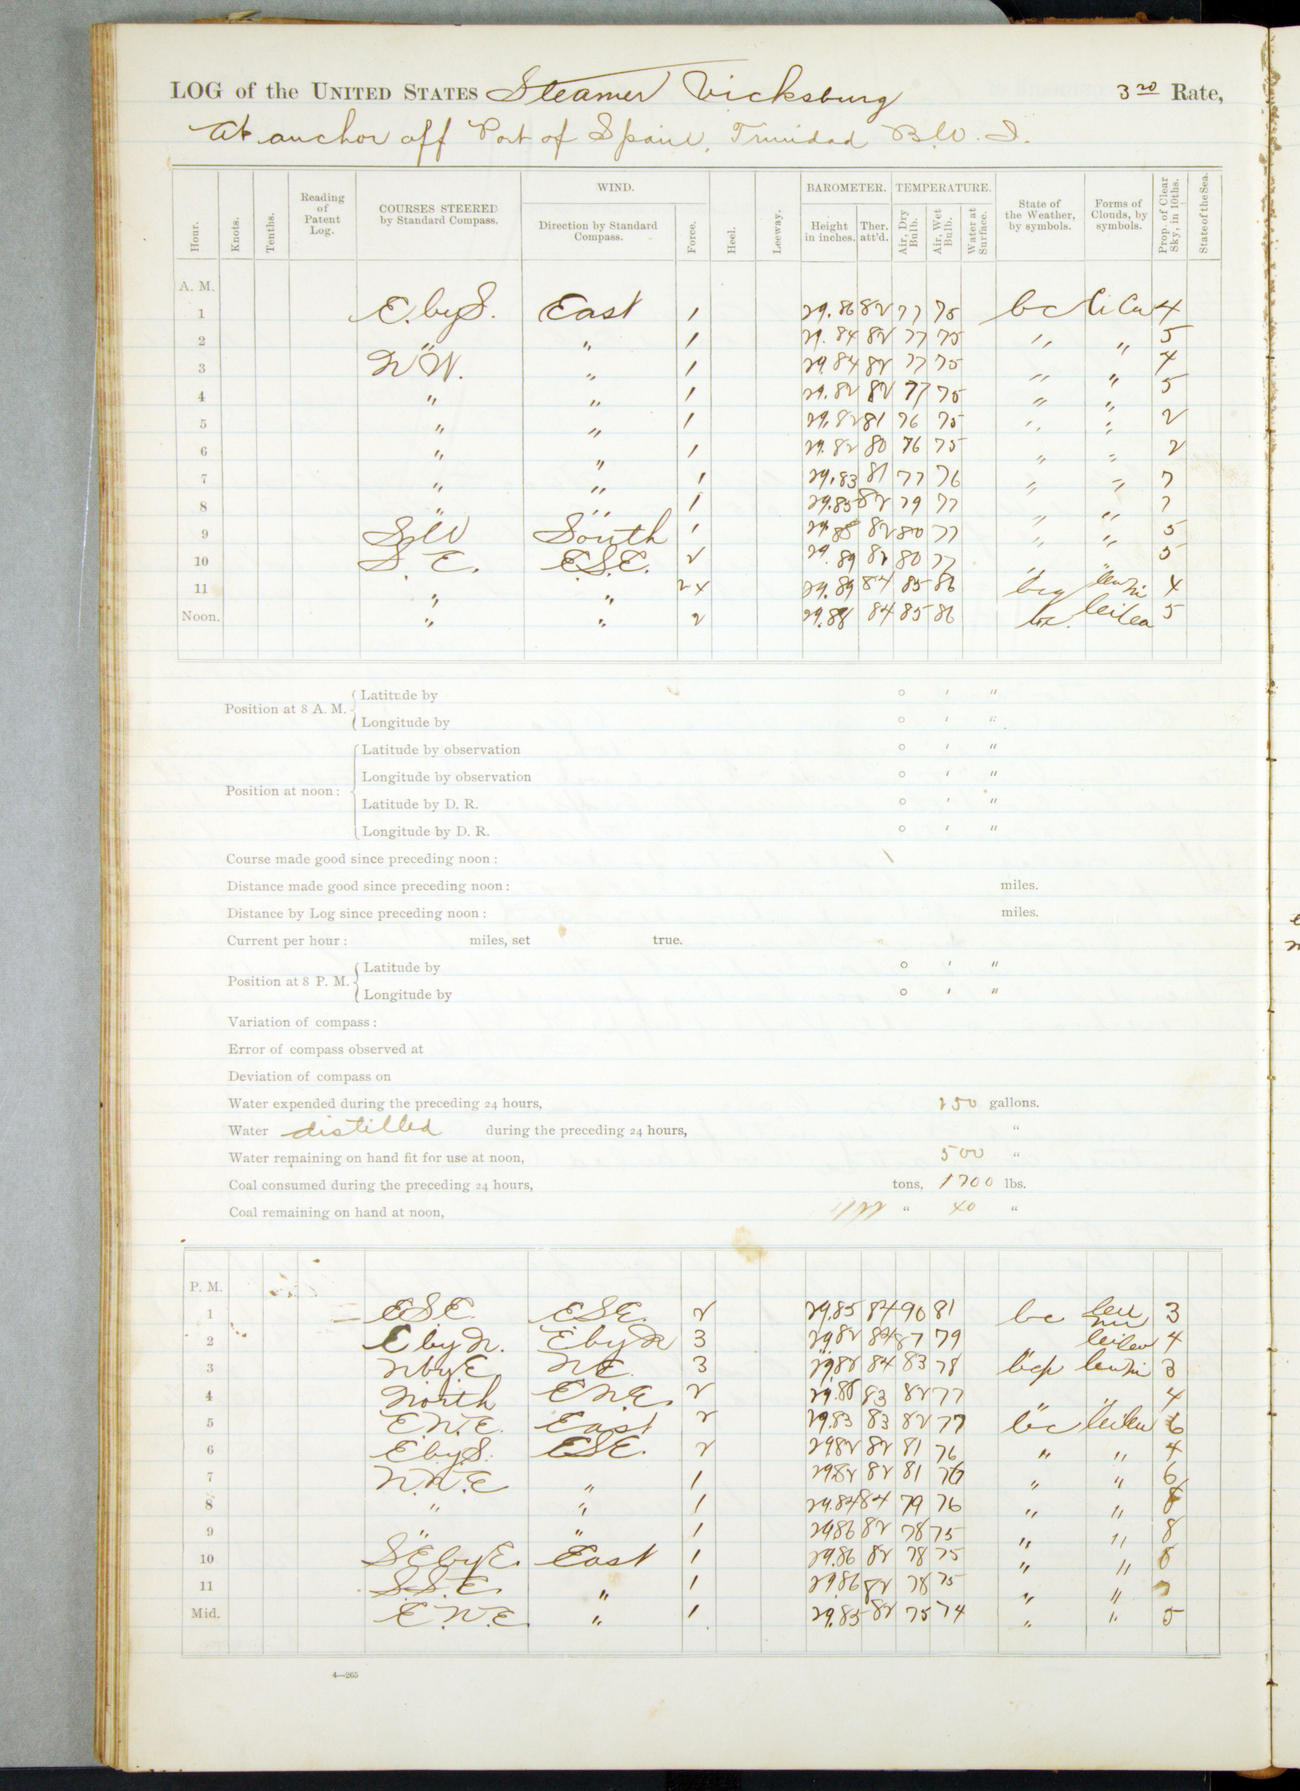 LOG of the UNITED STATES Steamer Vicksburg 3rd Rate,
At anchor off Port of Spain, Trinidad B.W.I.
Hour. Knots. Tenths. Reading of Patent Log. COURSES STEERED by Standard Compass. WIND. Direction by Standard Compass. Force. Heel. Leeway. BAROMETER. Height in inches. Ther. att'd. TEMPERATURE. Air, Dry Bulb. Air, Wet Bulb. Water at Surface. State of the Weather, by symbols. Forms of Clouds, by symbols. Prop. of Clear Sky, in 10ths. State of the Sea.
A. M.
1 E. by S. East 1 29.86 82 77 75 bc Ci Cu 4
2 " " 1 29.84 82 77 75 " " 5
3 N W. " 1 29.84 82 77 75 " " 4
4 " " 1 29.82 82 77 75 " " 5
5 " " 1 29.82 81 76 75 " " 2
6 " " 1 29.82 80 76 75 " " 2
7 " " 1 29.83 81 77 76 " " 7
8 " " 1 29.85 82 79 77 " " 7
9 S W South 1 29.88 82 80 77 " " 5
10 S. E. E.S.E. 2 29.89 82 80 77 " " 5
11 " " 2 29.89 84 85 86 4
Noon. " " 2 29.88 84 85 86 bc. 5
Position at 8 A. M. Latitude by ° ' "
Longitude by ° ' "
Position at noon: Latitude by observation ° ' "
Longitude by observation ° ' "
Latitude by D. R. ° ' "
Longitude by D. R. ° ' "
Course made good since preceding noon:
Distance made good since preceding noon: miles.
Distance by Log since preceding noon: miles.
Current per hour: miles, set true.
Position at 8 P. M. Latitude by ° ' "
Longitude by ° ' "
Variation of compass:
Error of compass observed at
Deviation of compass on
Water expended during the preceding 24 hours, 250 gallons.
Water distilled during the preceding 24 hours, "
Water remaining on hand fit for use at noon, 500 "
Coal consumed during the preceding 24 hours, tons, 1700 lbs.
Coal remaining on hand at noon, " 40 "
P. M.
1 ESE. ESE. 2 29.85 84 90 81 bc 3
2 E by N. E by N 3 29.82 84 87 79 4
3 N by E N E. 3 29.82 84 83 78 bcp 3
4 North E N E. 2 83 82 77 " " 4
5 E. N. E. East 2 29.83 83 82 77 bc 6
6 E by S. ESE. 2 29.82 82 81 76 " " 4
7 N. N. E " 1 29.82 82 81 76 " " 6
8 " " 1 29.84 84 79 76 " " 8
9 " " 1 29.86 82 78 75 " " 8
10 SE by E. East 1 29.86 82 78 75 " " 8
11 S. S. E. " 1 29.86 82 78 75 " " 7
Mid. E. N. E. " 1 29.85 82 75 74 " " 5
4—265